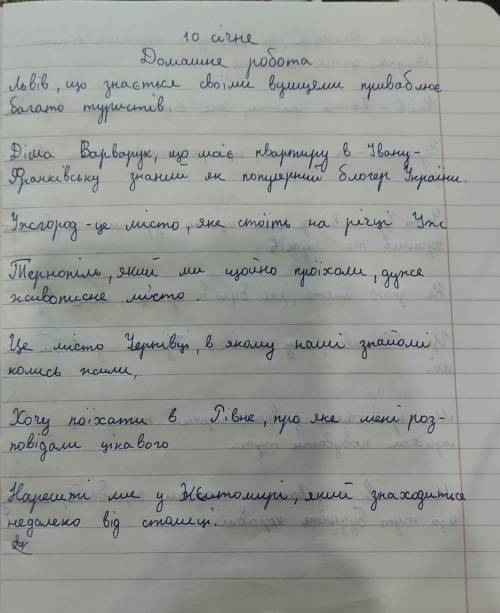 10 січне
Домашне робота
Львів, що знається своїми вулицями приваблює
багато туристів.
Діма Варварук, що має квартиру в Івану-
Франківську знаний як популярний блогер України.
Ужгород - це місто, яке стоїть на річці Уж
Тернопіль, який ми щойно проїхали, дуже
живописне місто.
Це місто Чернівці, в якому наші знайомі
колись жили,
Хочу поїхати в Рівне, про яке мені роз-
повідали цікавого
Нарешті ми у Житомирі, який знаходиться
недалеко від столиці.